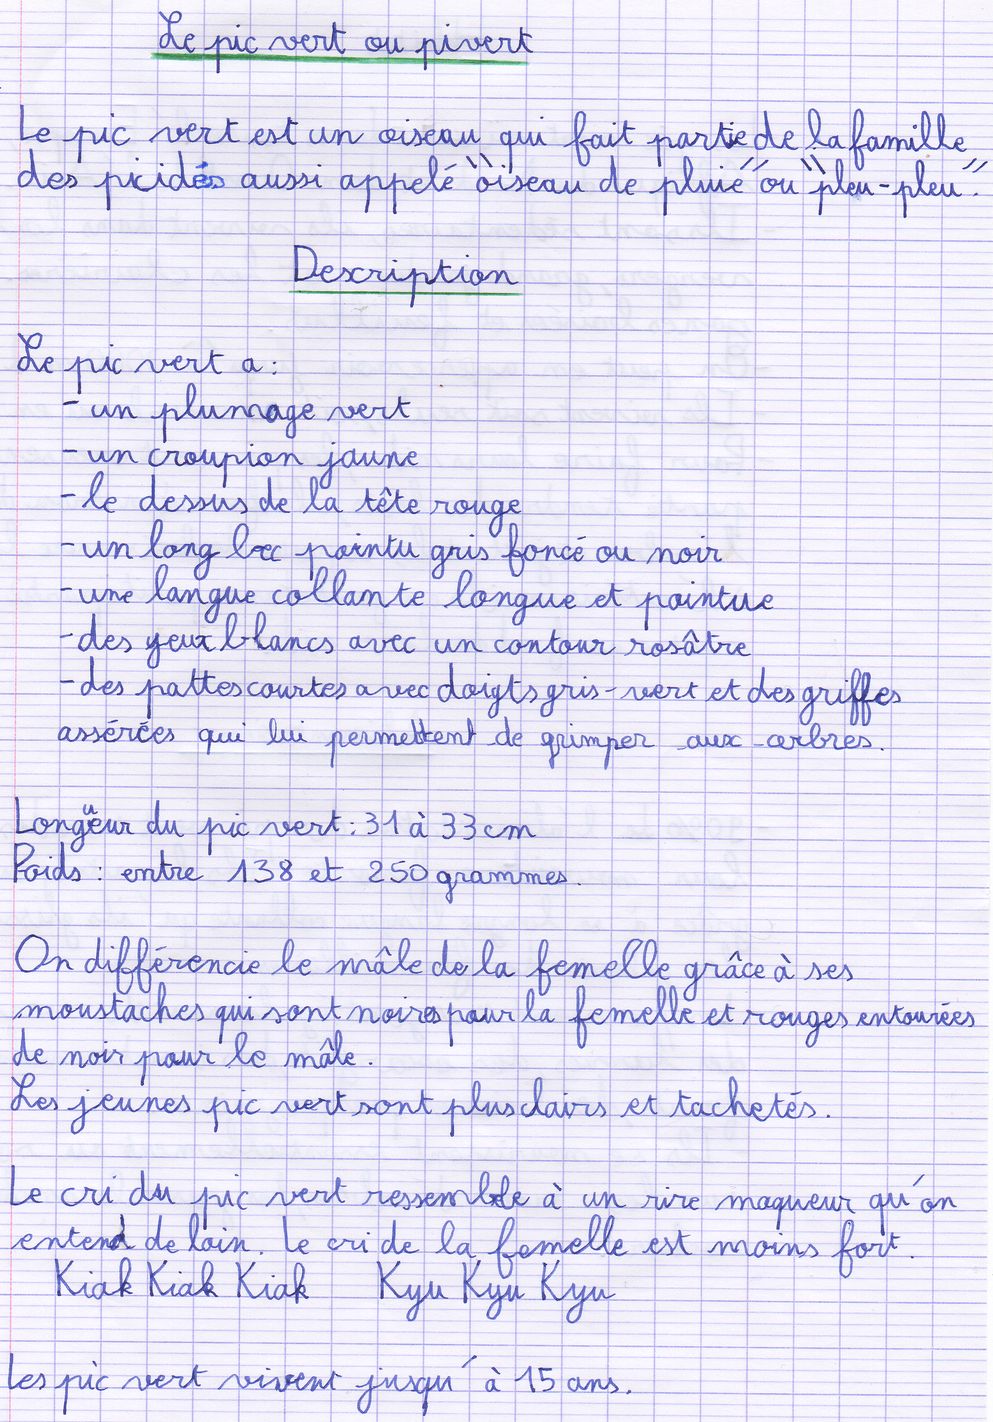 Le pic vert ou pivert
Le pic vert est un oiseau qui fait partie de la famille
des picidés aussi appelé "oiseau de pluie" ou "pleu-pleu".
Description
Le pic vert a :
- un plumage vert
- un croupion jaune
- le dessus de la tête rouge
- un long bec pointu gris foncé ou noir
- une langue collante longue et pointue
- des yeux blancs avec un contour rosâtre
- des pattes courtes avec doigts gris-vert et des griffes
assérées qui lui permettent de grimper aux arbres.
Longueur du pic vert : 31 à 33 cm
Poids : entre 138 et 250 grammes.
On différencie le mâle de la femelle grâce à ses
moustaches qui sont noires pour la femelle et rouges entourées
de noir pour le mâle.
Les jeunes pic vert sont plus clairs et tachetés.
Le cri du pic vert ressemble à un rire moqueur qu'on
entend de loin. Le cri de la femelle est moins fort.
Kiak Kiak Kiak Kyu Kyu Kyu
Les pic vert vivent jusqu'à 15 ans.